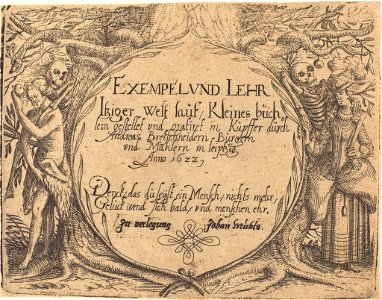 EXEMPEL UND LEHR
Itziger Welt lauf, Kleines büch
lein gestellet und gradiret in Kupffer durch
Andreas Bretschneidern, Bürgern
und Mahlern in Leipzig,
Anno 1622,
Denck das du seyst ein Mensch, nichts mehr,
Gelück wend sich bald, und menschen ehr.
In verlegung Johan